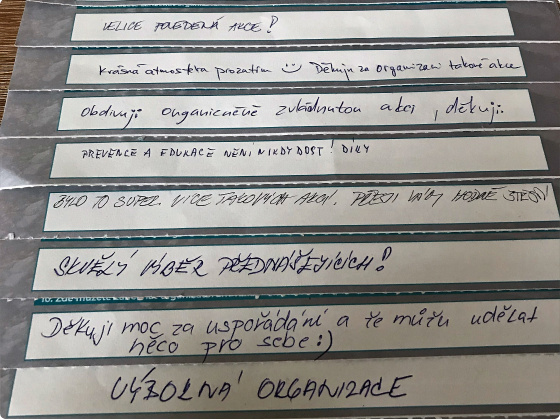 VELICE POVEDENÁ AKCE!
Krásná atmosféra prozatím :) Děkuji za organizaci takové akce
Obdivuji organizačně zvládnutou akci, děkuji.
PREVENCE A EDUKACE NENÍ NIKDY DOST! DÍKY
BYLO TO SUPER. VÍCE TAKOVÝCH AKCÍ. PŘEJI VÁM HODNĚ ŠTĚSTÍ
SKVĚLÝ VÝBĚR PŘEDNÁŠEJÍCÍCH!
10. Zde můžete
Děkuji moc za uspořádání a že můžu udělat
něco pro sebe :)
VÝBORNÁ ORGANIZACE